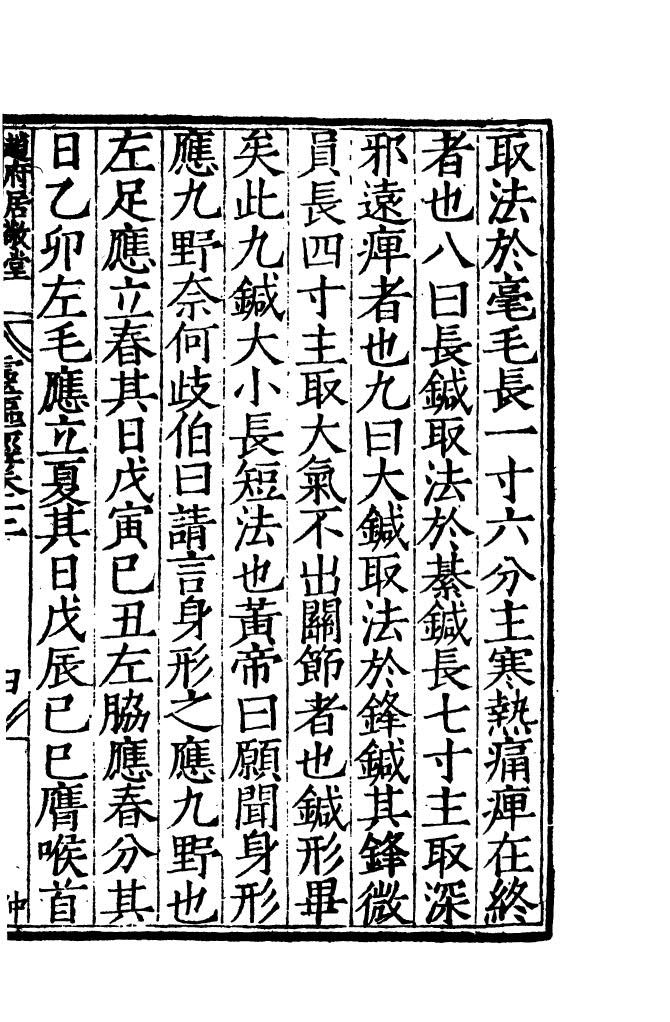 取法於毫毛長一寸六分主寒熱痛痺在終
者也八曰長鍼取法於綦鍼長七寸主取深
邪遠痺者也九曰大鍼取法於鋒鍼其鋒微
員長四寸主取大氣不出關節者也鍼形畢
矣此九鍼大小長短法也黃帝曰願聞身形
應九野奈何歧伯曰請言身形之應九野也
左足應立春其日戊寅巳丑左脇應春分其
日乙卯左毛應立夏其日戊辰巳巳膺喉首
趙府居敬堂